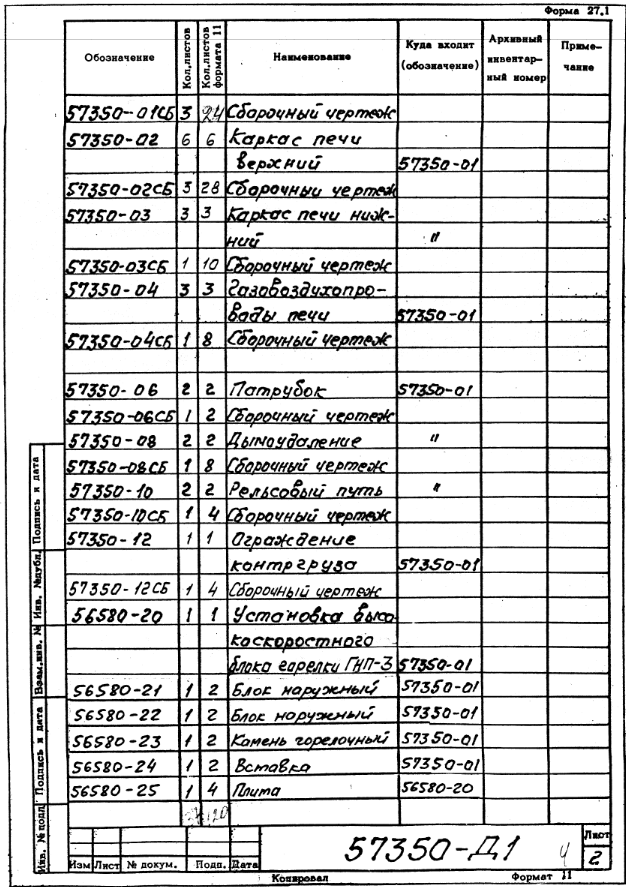 Форма 27.1
Обозначение Кол.листов Кол.листов формата 11 Наименование Куда входит (обозначение) Архивный инвентар-ный номер Приме-чание
57350-01СБ 3 24 Сборочный чертеж
57350-02 6 6 Каркас печи
верхний 57350-01
57350-02СБ 3 28 Сборочный чертеж
57350-03 3 3 Каркас печи ниж-
ний "
57350-03СБ 1 10 Сборочный чертеж
57350-04 3 3 Газовоздухопро-
воды печи 57350-01
57350-04СБ 1 8 Сборочный чертеж
57350-06 2 2 Патрубок 57350-01
57350-06СБ 1 2 Сборочный чертеж
57350-08 2 2 Дымоудаление "
57350-08СБ 1 8 Сборочный чертеж
57350-10 2 2 Рельсовый путь "
57350-10СБ 1 4 Сборочный чертеж
57350-12 1 1 Ограждение
контргруза 57350-01
57350-12СБ 1 4 Сборочный чертеж
56580-20 1 1 Установка высо
коскоростного
блока горелки ГНП-3 57350-01
56580-21 1 2 Блок наружный 57350-01
56580-22 1 2 Блок наружный 57350-01
56580-23 1 2 Камень горелочный 57350-01
56580-24 1 2 Вставка 57350-01
56580-25 1 4 Плита 56580-20
Инв. № подл Подпись и дата Взам.инв. № Инв. №дубл. Подпись и дата
57350-Д1 4
Лист
2
Изм Лист № докум. Подп. Дата
Копировал Формат 11